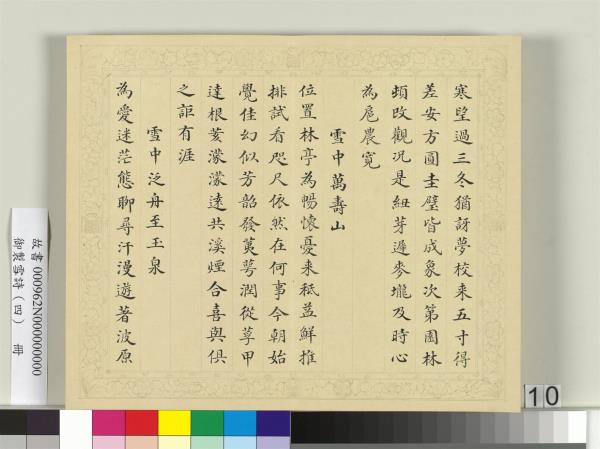 寒望過三冬猶訝夢校来五寸得
差安方圓圭璧皆成象次第園林
頓改觀況是紐芽遲麥壠及時心
為扈農寬
雪中萬壽山
位置林亭為暢懷憂来秖益鮮推
排試看咫尺依然在何事今朝始
覺佳幻似芳韶發萸萼潤從莩甲
達根荄濛濛遠共溪煙合喜與俱
之詎有涯
雪中泛舟至玉泉
為愛迷茫態聊尋汗漫遊著波原
故書 000962N000000000
御製雪詩（四） 冊
10